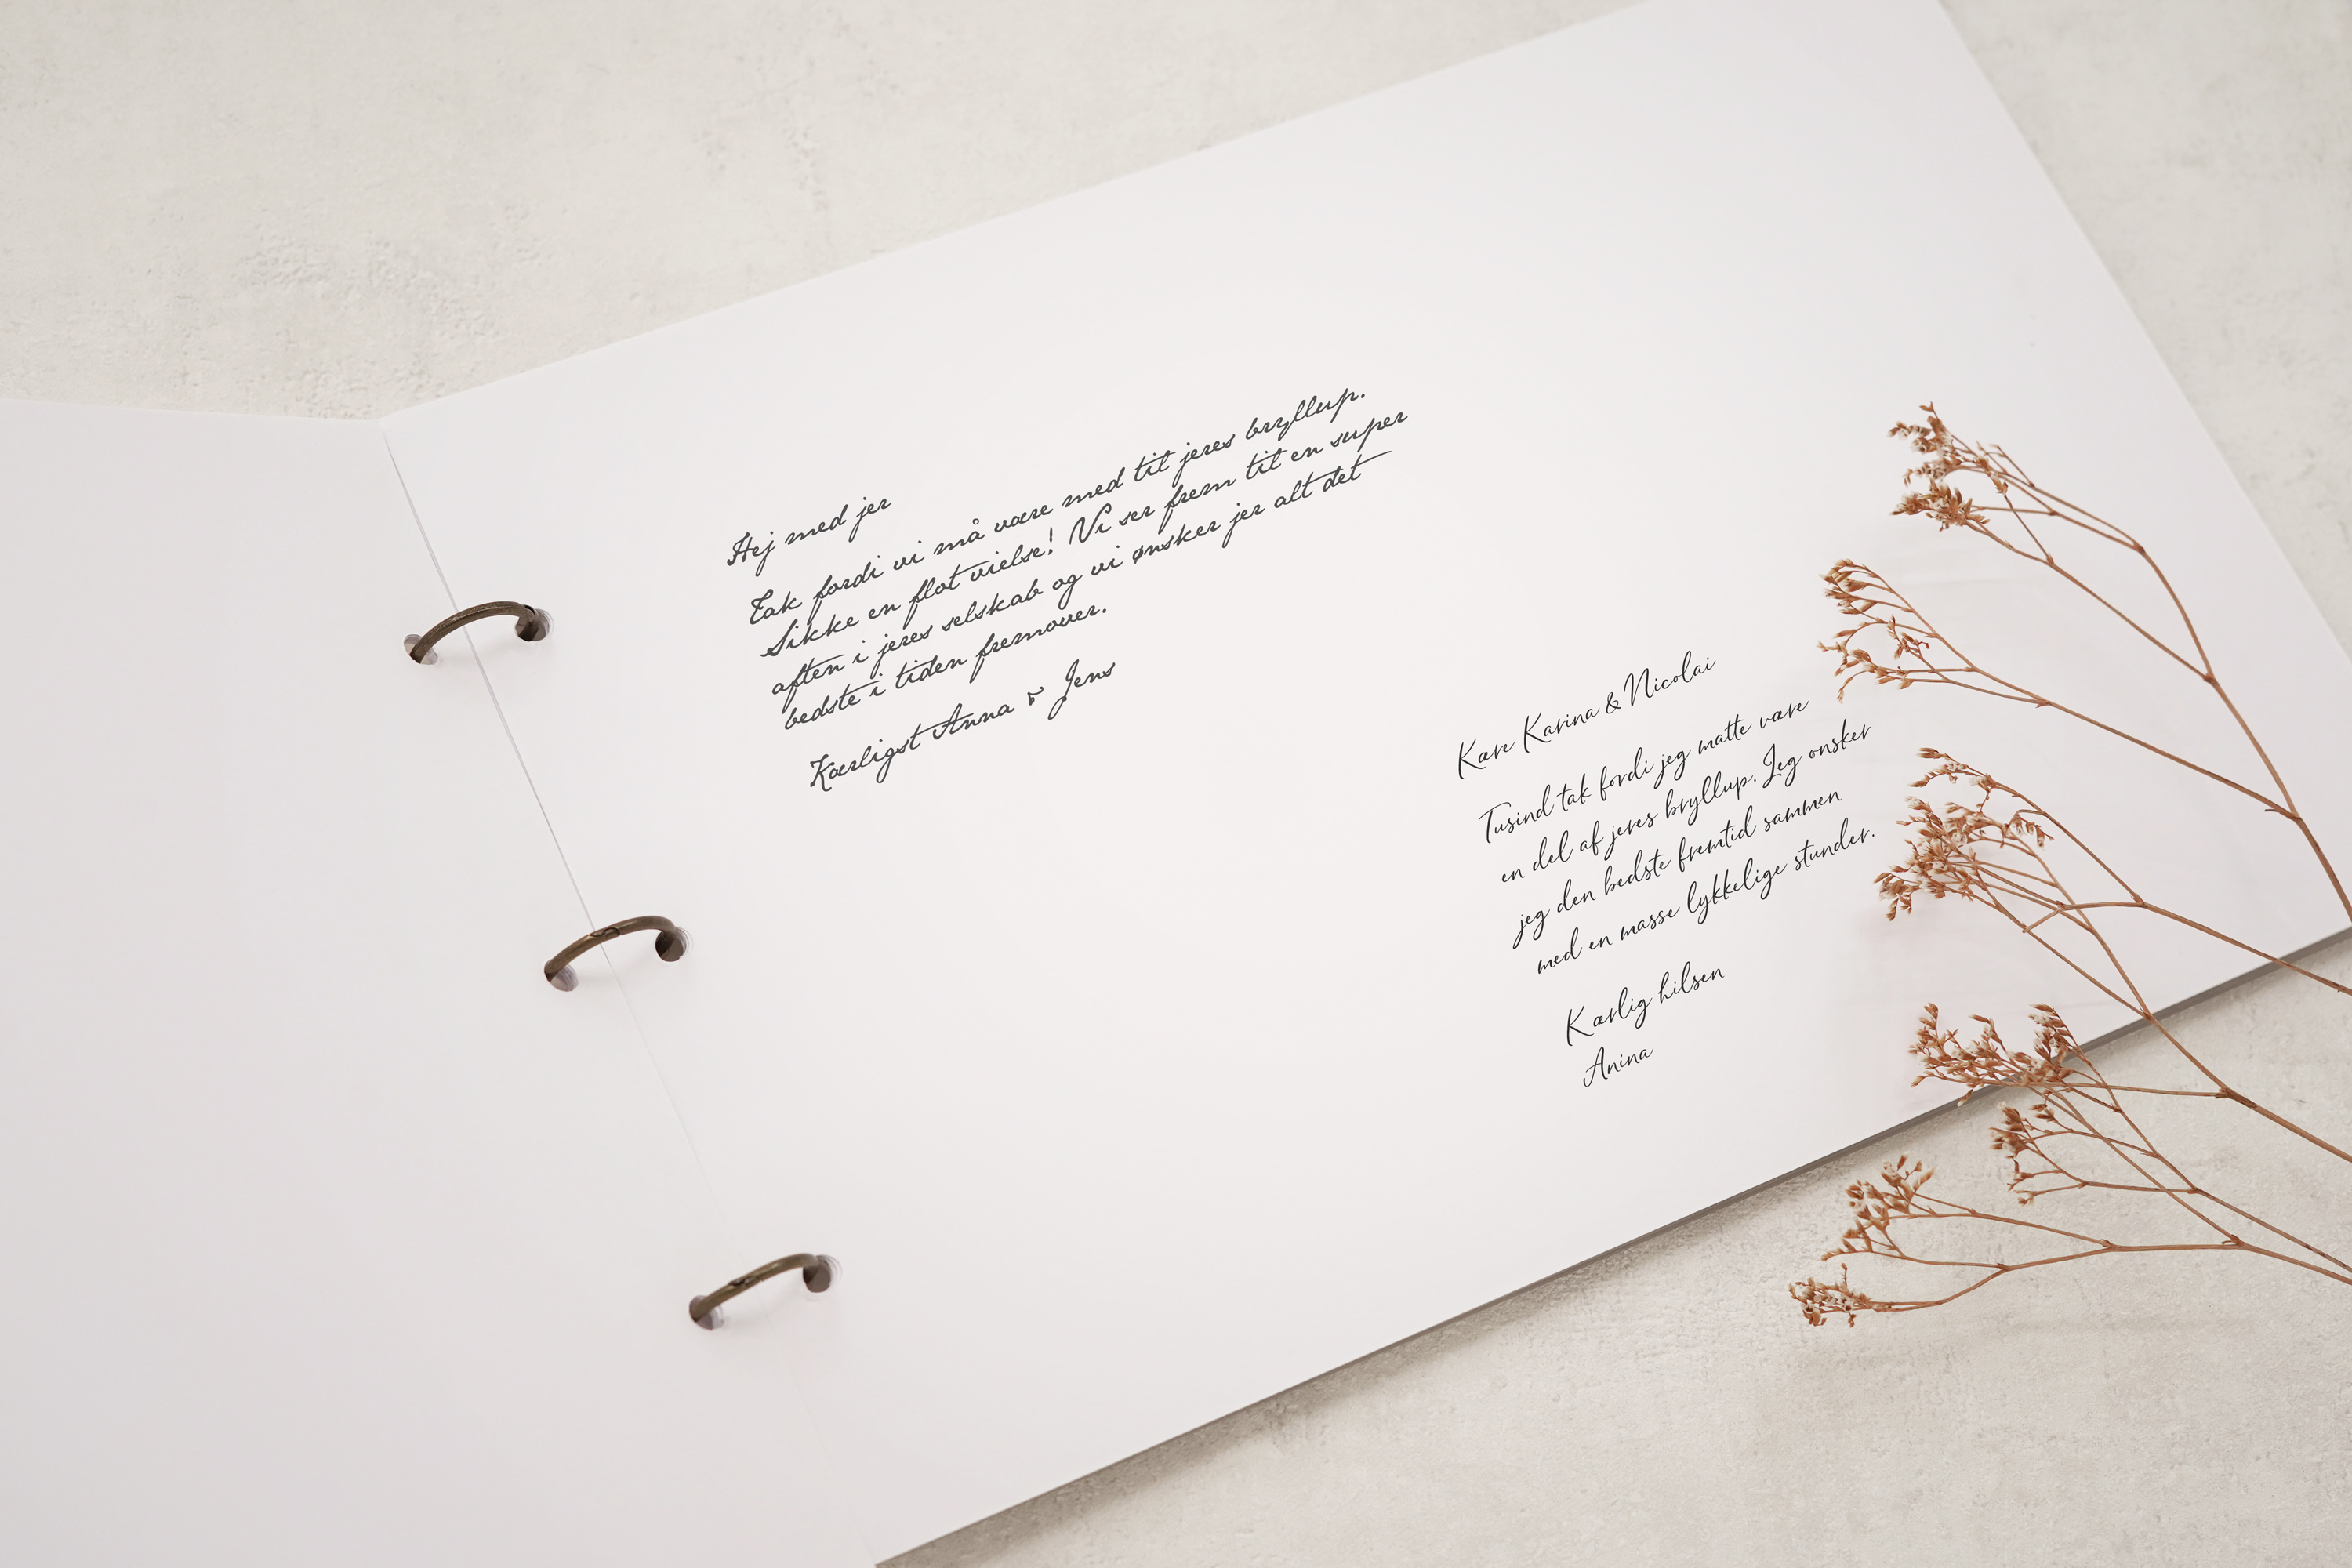 Hej med jer
Tak fordi vi må være med til jeres bryllup.
Sikke en flot vielse! Vi ser frem til en super
aften i jeres selskab og vi ønsker jer alt det
bedste i tiden fremover.
Kærligst Anna & Jens
Kære Karina & Nicolai
Tusind tak fordi jeg matte være
en del af jeres bryllup. Jeg onsker
jeg den bedste fremtid sammen
med en masse lykkelige stunder.
Kærlig hilsen
Anina